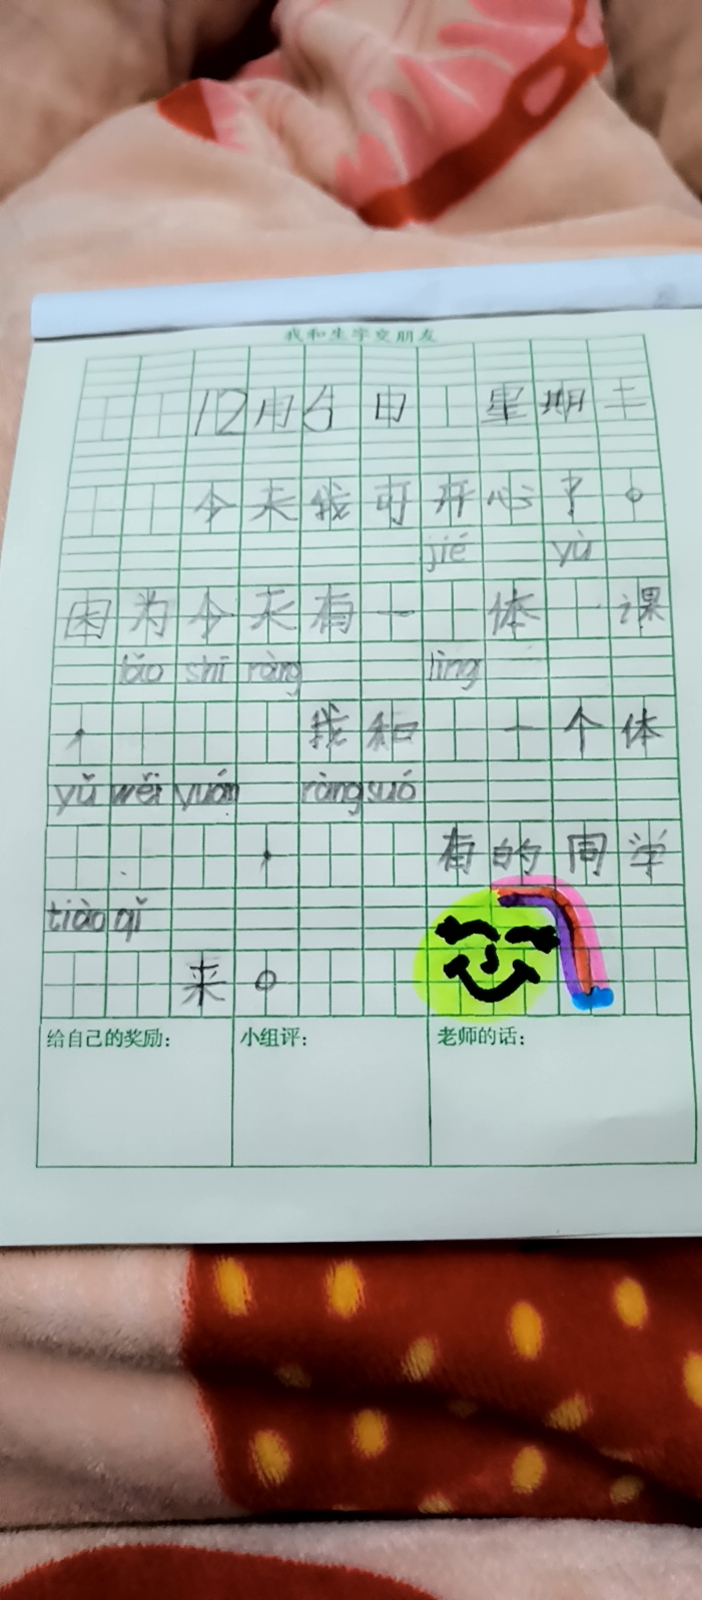 我和生字交朋友
12月6日 星期
今天我可开心了。
jié yù
因为今天有一 体 课
lǎo shī ràng lìng
， 我和 一个体
yǔ wěi yuán ràng suó
， 有的同学
tiào qǐ
来。
给自己的奖励： 小组评： 老师的话：